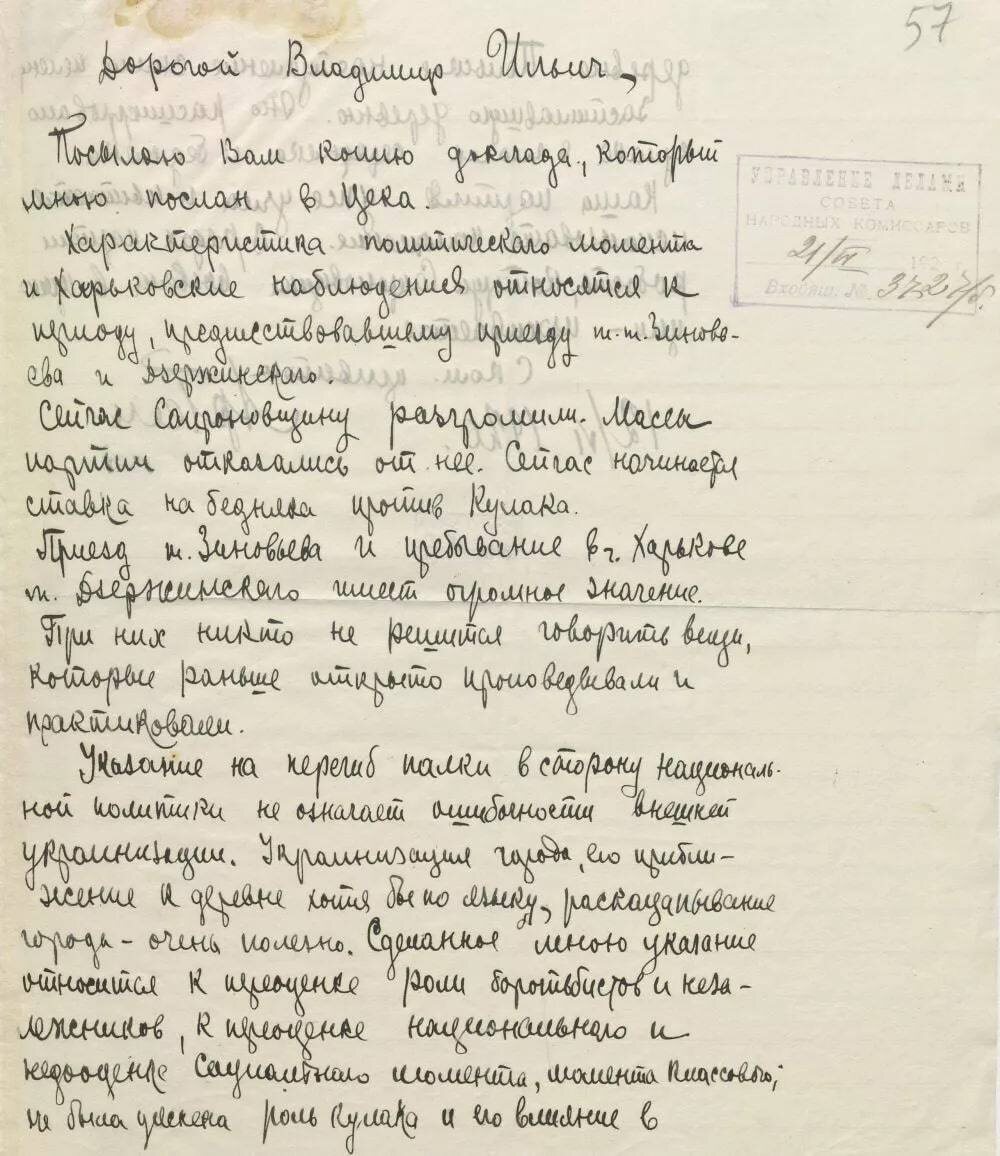 57
Дорогой Владимир Ильич,
Посылаю Вам копию доклада, который
мною послан в Цека.
УПРАВЛЕНИЕ ДЕЛАМИ
СОВЕТА
НАРОДНЫХ КОМИССАРОВ
21/VI 192
Входящ. № 3727/б.
Характеристика политического момента
и Харьковские наблюдения относятся к
периоду, предшествовавшему приезду т.т. Зиновь-
ева и Дзержинского.
Сейчас Сапроновщину разгромили. Массы
партии отказались от нее. Сейчас начинается
ставка на бедняка против Кулака.
Приезд т. Зиновьева и пребывание в г. Харькове
т. Дзержинского имеет огромное значение.
При них никто не решится говорить вещи,
которые раньше открыто проповедывали и
практиковали.
Указание на перегиб палки в сторону националь-
ной политики не означает ошибочности внешней
украинизации. Украинизация города, его прибли-
жение к деревне хотя бы по языку, раскацапывание
города - очень полезно. Сделанное мною указание
относится к переоценке роли боротьбистов и неза-
лежников, к переоценке национального и
недооценке социального момента, момента классового;
не была уяснена роль кулака и его влияние в